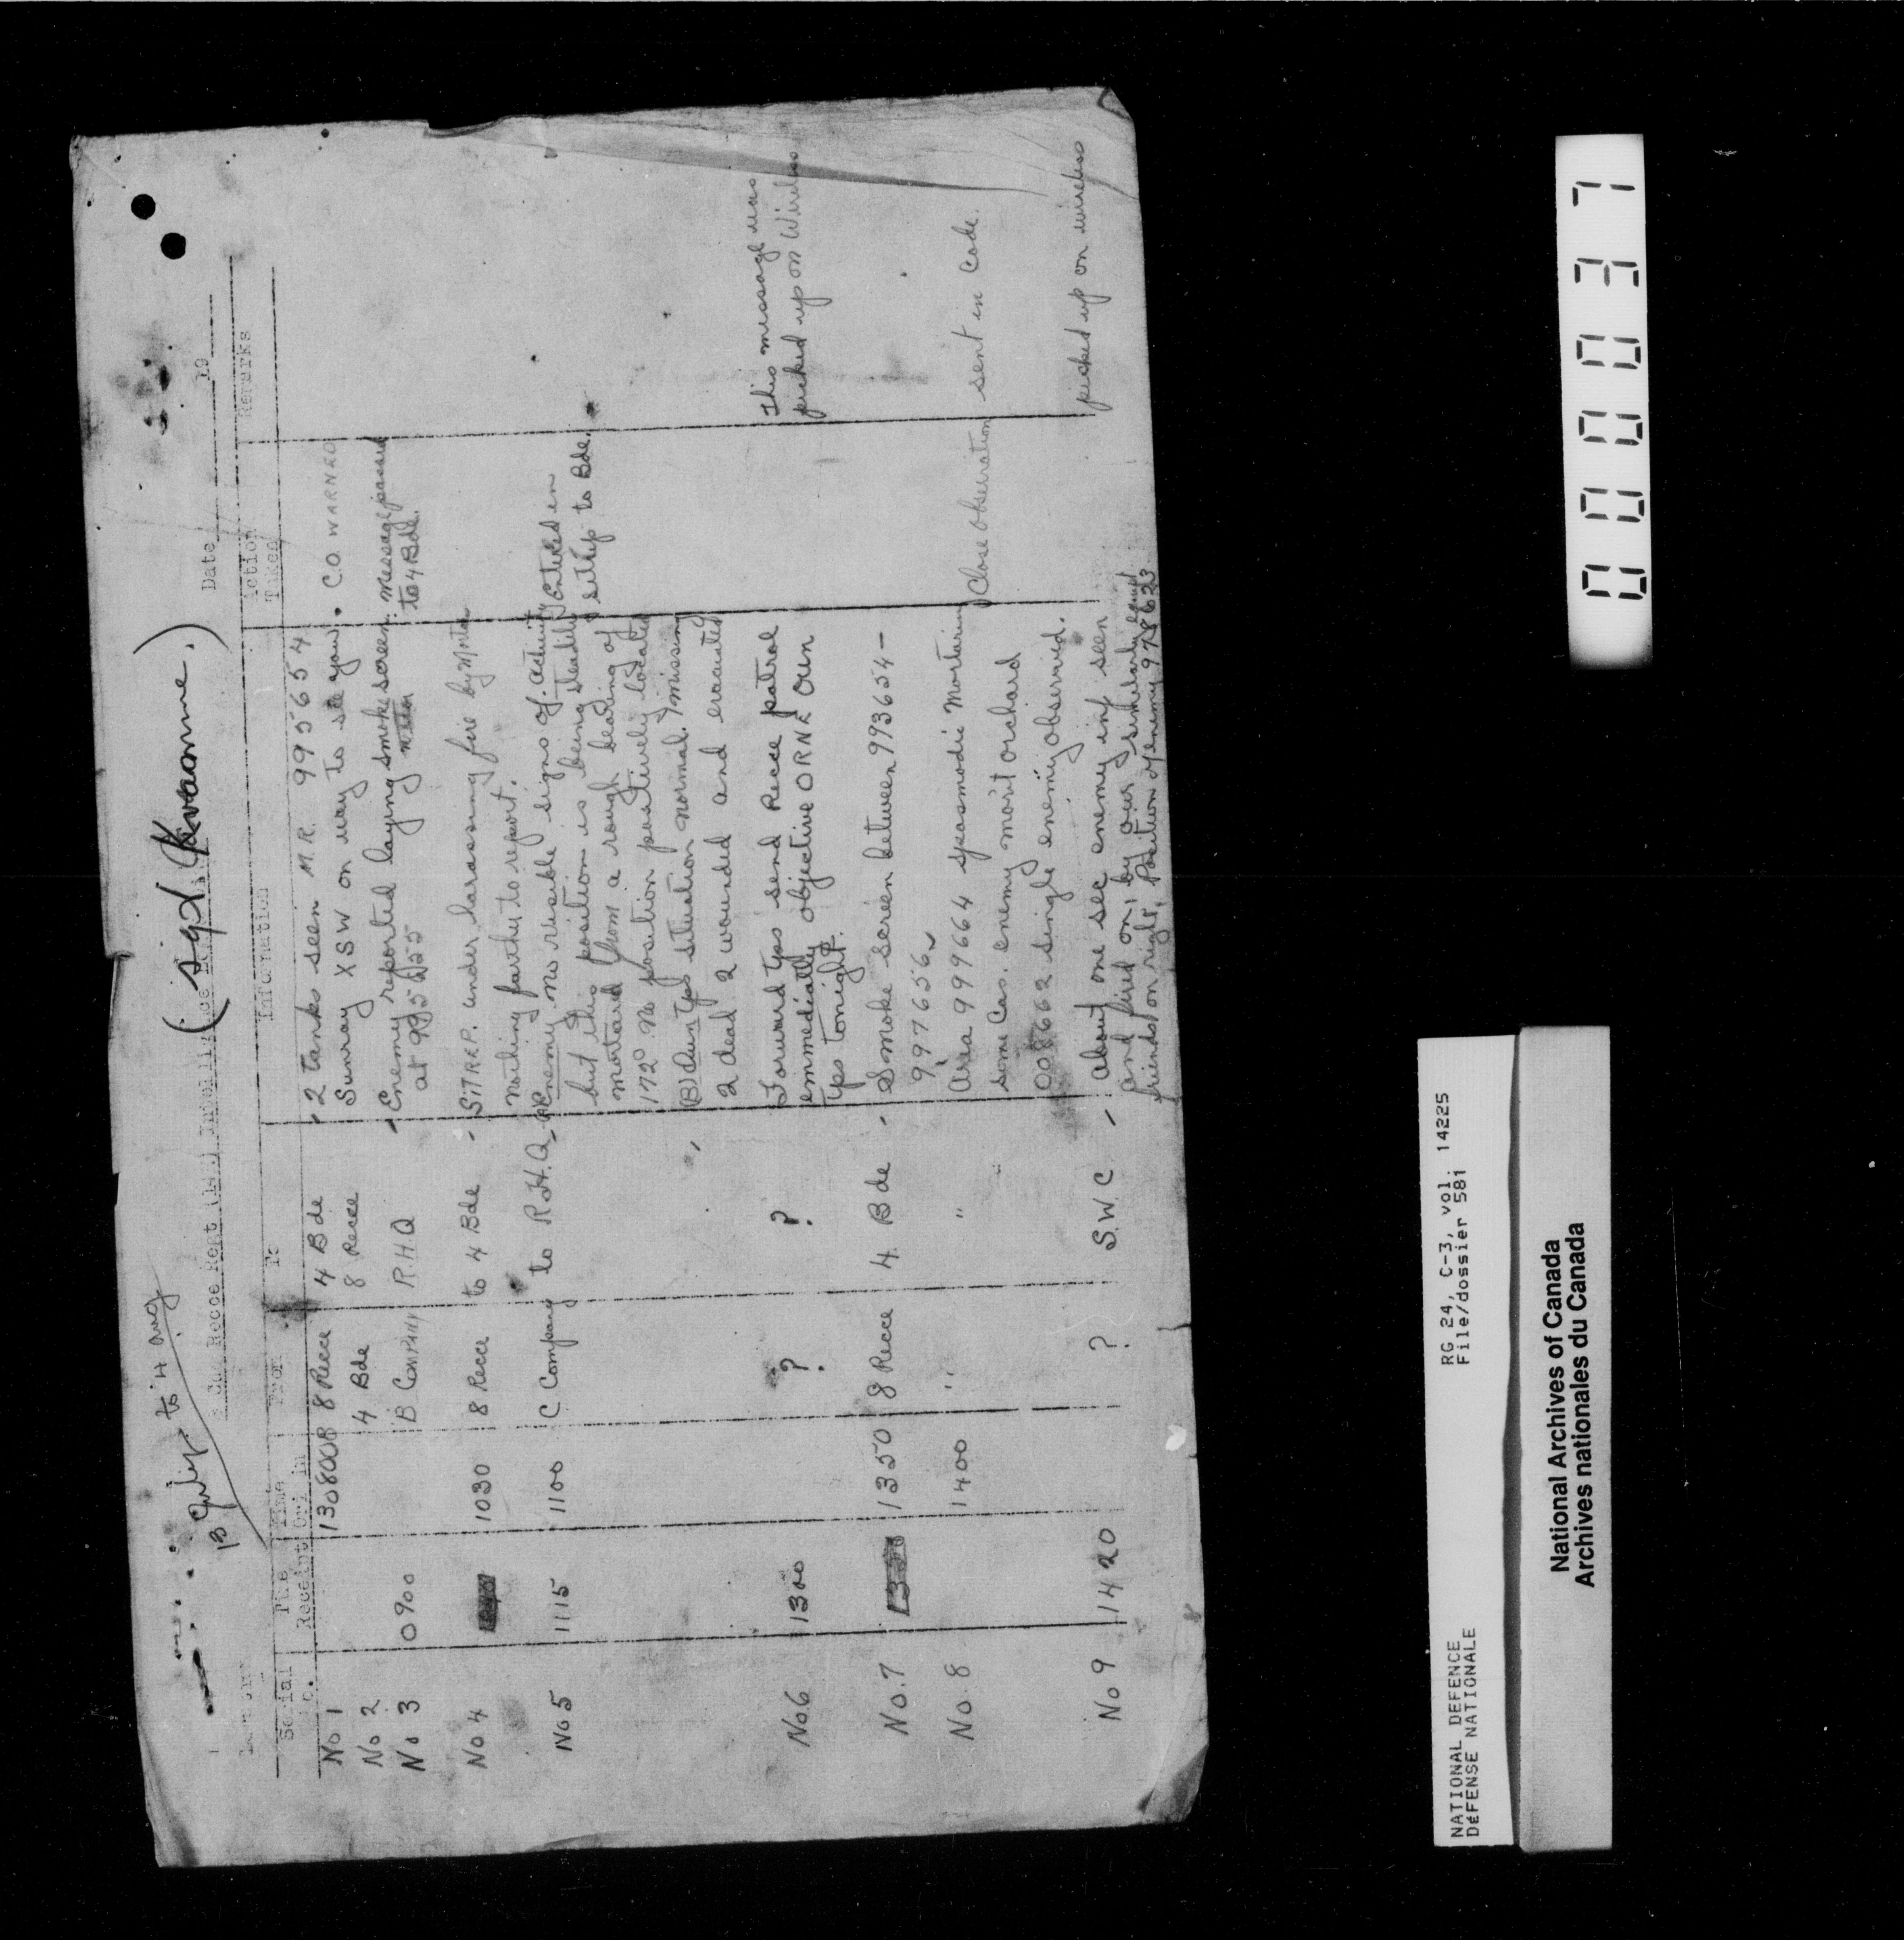 13 July to 4 Aug
(sgd Kvamme.)
8 Cdn Recce Regt (14H) Intelligence
Date 19
Serial No. | Time Receipt | Time Ori in | From | To | Information | Action Taken | Remarks
No 1 | 130800B | 8 Recce | 4 Bde | 2 tanks seen M.R. 995654
No 2 | 4 Bde | 8 Recce | Sunray XSW on way to see you. | C.O. WARNED
No 3 | 0900 | B Company | RHQ | Enemy reported laying smoke screen | Message passed
at 995655 | to 4 Bde.
No 4 | 1030 | 8 Recce | to 4 Bde | SITREP. under harassing fire by Mortar
nothing further to report.
No 5 | 1115 | 1100 | C Company | to R.H.Q. | Enemy no visible signs of activity | Entered in
but this position is being steadily | sitrep to Bde.
mortared from a rough bearing of
172° No position positively located
(B) Own Tps situation normal. 1 missing
2 dead 2 wounded and evacuated
No.6 | 1300 | ? | ? | Forward tps send Recce patrol | This message was
emmediatly objective ORNE Own | picked up on Wireless
tps tonight.
No.7 | 1350 | 8 Recce | 4 Bde | Smoke screen between 993654 -
997656
No.8 | 1400 | " | " | Area 999664 spasmodic Mortaring | Close observation | sent in Code.
some Cas. enemy mort orchard
008662 single enemy observed.
No 9 | 1420 | ? | S.W.C | About one sec enemy inf seen | picked up on wireless
and fired on, by our similarly
friends on right, Position of enemy 978623
0000037
NATIONAL DEFENCE
DÉFENSE NATIONALE
RG 24, C-3, vol. 14225
File/dossier 581
National Archives of Canada
Archives nationales du Canada